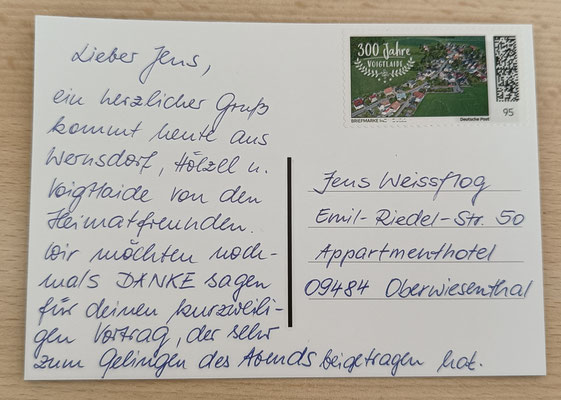 Lieber Jens,
ein herzlicher Gruß
kommt heute aus
Wernsdorf, Hölzel u.
Voigtlaide von den
Heimatfreunden.
Wir möchten noch-
mals DANKE sagen
für deinen kurzweili-
gen Vortrag, der sehr
zum Gelingen des Abends beigetragen hat.
300 Jahre
VOIGTLAIDE
BRIEFMARKE
Deutsche Post
95
Jens Weissflog
Emil-Riedel-Str. 50
Appartmenthotel
09484 Oberwiesenthal